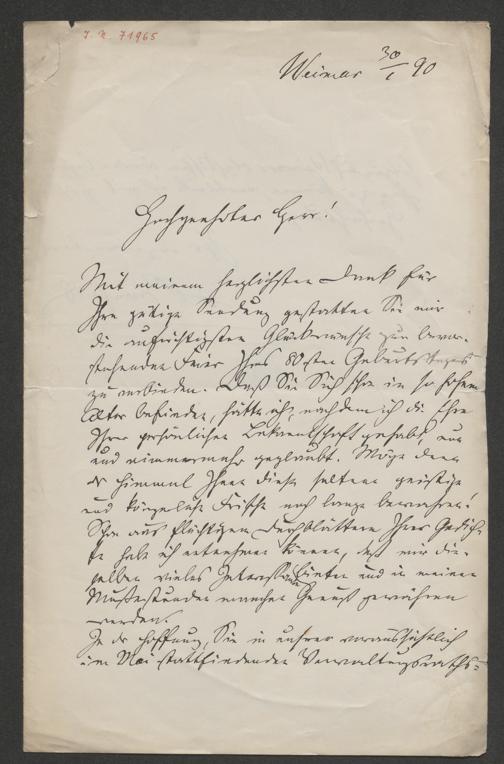 I. N. 71965
Weimar 30/1 90
Hochgeehrter Herr!
Mit meinem herzlichsten Dank für
Ihre gütige Sendung gestatten Sie mir
die aufrichtigsten Glückwünsche zur bevor-
stehenden Feier Ihres 80sten Geburtstages
zu verbinden. Daß Sie Sich schon in so hohem
Alter befinden, hätte ich, nachdem ich die Ehre
Ihrer persönlichen Bekanntschaft gehabt, nun
und nimmermehr geglaubt. Möge denn
der Himmel Ihnen diese seltene geistige
und körperliche Frische noch lange bewahren!
Schon aus flüchtigem Durchblättern Ihrer Gedich-
te habe ich entnehmen können, daß mir die-
selben vieles Interessante bieten und in meinen
Mußestunden manchen Genuß gewähren
werden.
In der Hoffnung, Sie in unsrer voraussichtlich
im Mai stattfindenden Verwaltungsraths-